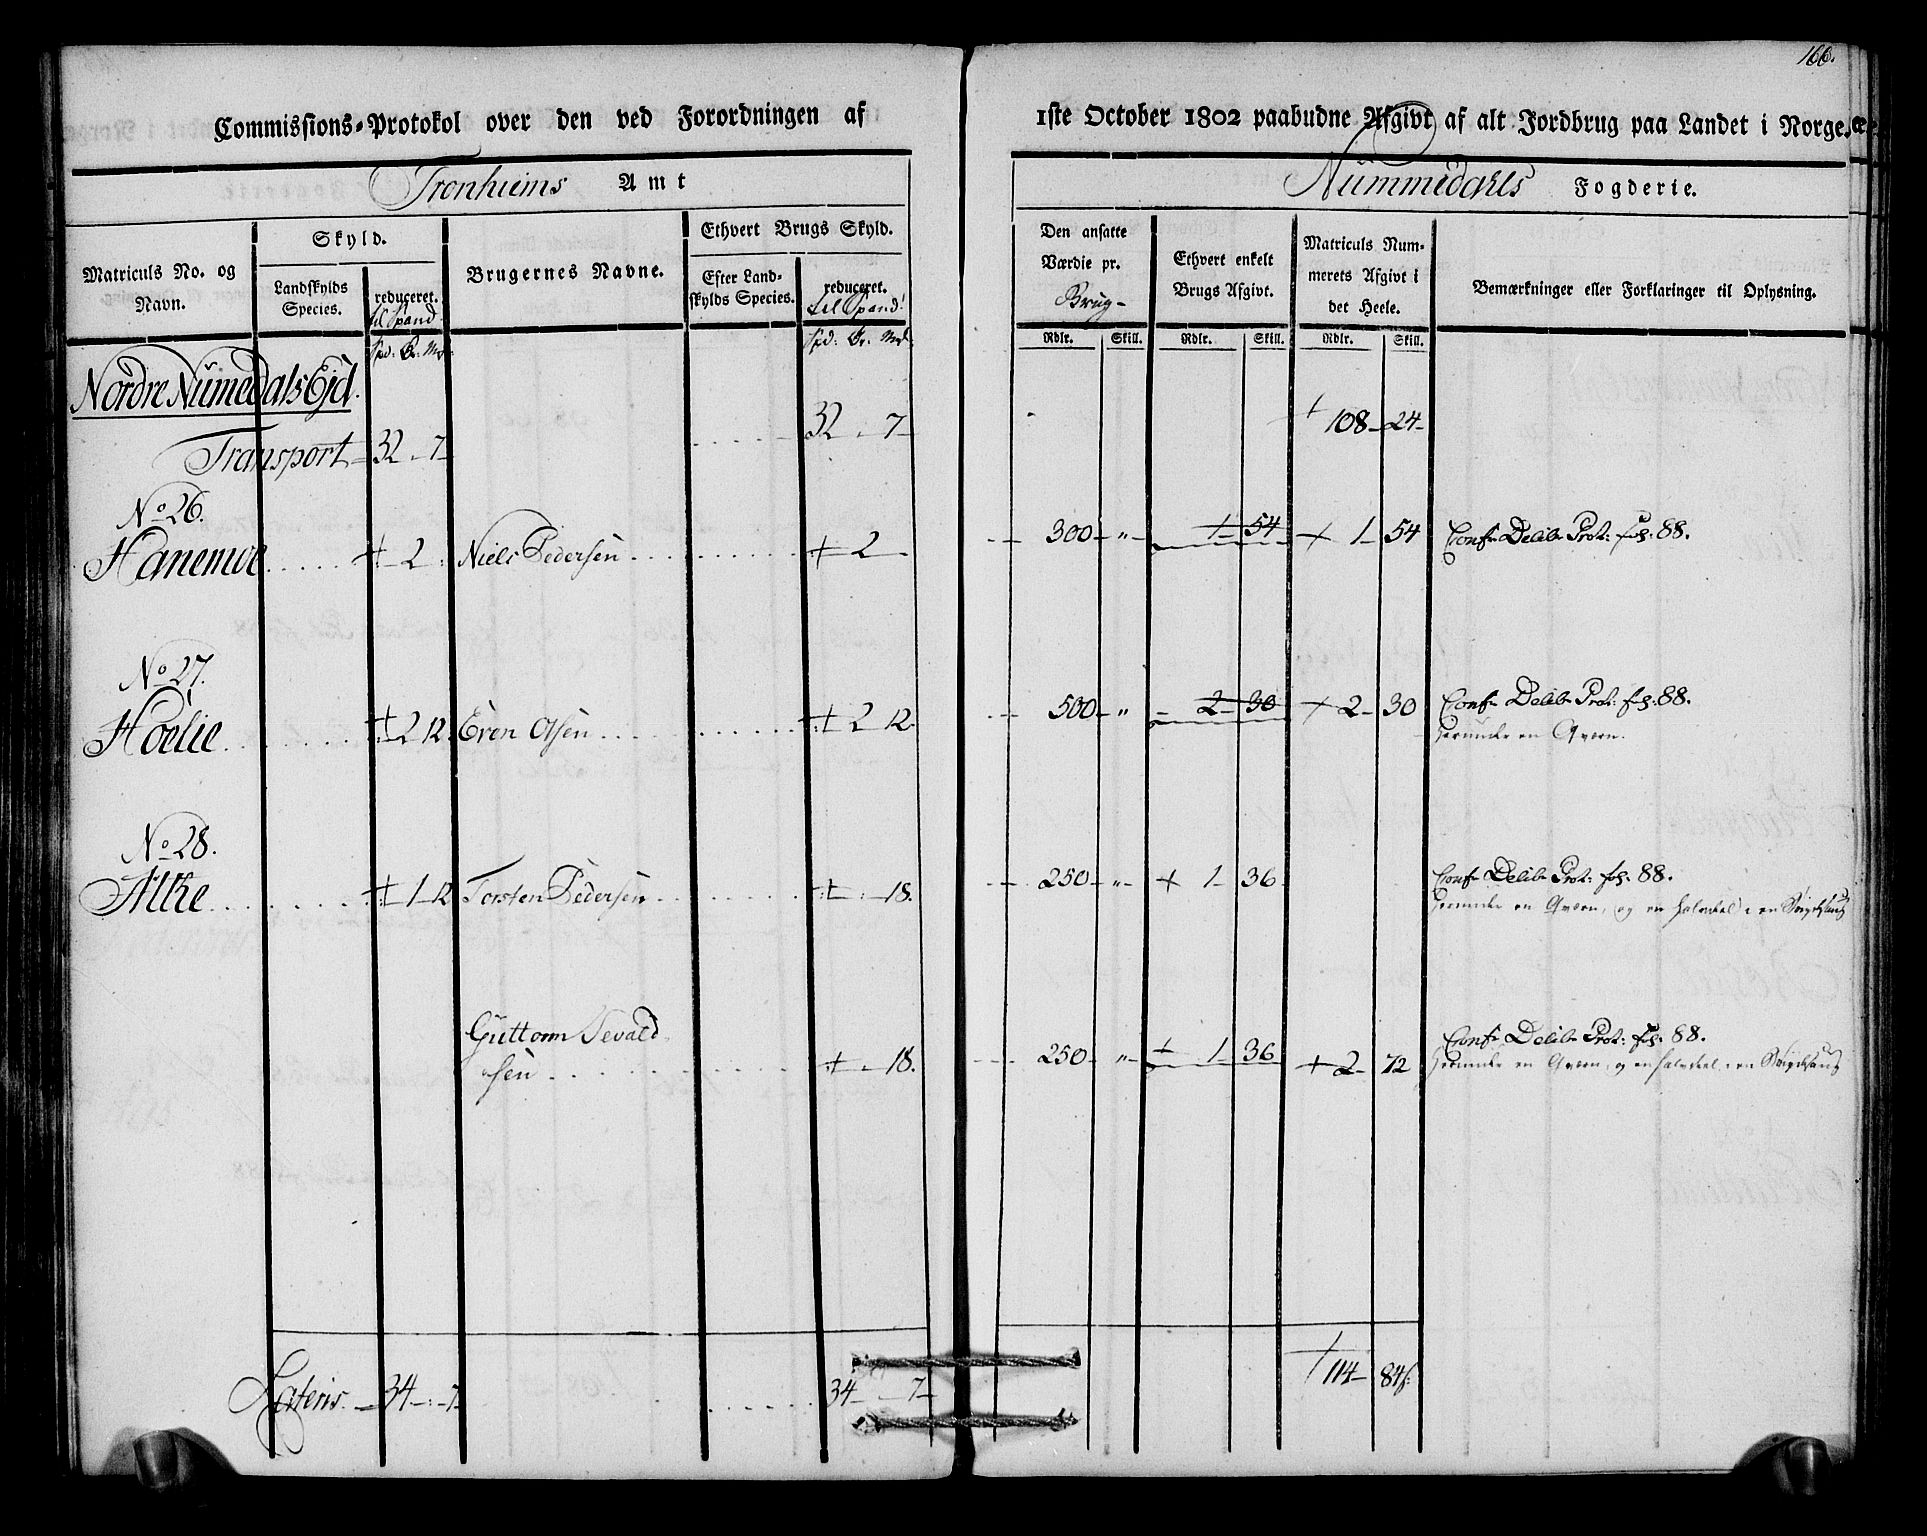 166.
Commissions-Protokol over den ved Forordningen af
1ste October 1802 paabudne Afgivt af alt Jordbrug paa Landet i Norge,
Tronhiems Amt
Nummedahls Fogderie.
Matriculs No. og Navn.
Skyld.
Landskylds Species.
reduceret. til Spand
Brugernes Navne.
Ethvert Brugs Skyld.
Efter Landskylds Species.
reduceret. til Spand
Den ansatte Værdie pr. Brug
Ethvert enkelt Brugs Afgivt.
Matriculs Nummerets Afgivt i det Heele.
Bemærkninger eller Forklaringer til Oplysning.
Spd: Ør. Mrk: Spd: Ør. Mrk: Rdlr. Skill. Rdlr. Skill. Rdlr. Skill.
Nordre Numedals Ejd.
Transport 32 . 7 32 . 7 108 24
No 26.
Hanemoe 2 Niels Pedersen 2 300 " 1 54 1 54 Conf: Delib: Prot: fol: 88.
No 27.
Hoelie 2 12 Even Olsen 2 12 500 " 2 30 2 30 Conf: Delib: Prot: fol: 88.
herunder en Qvern.
No 28.
1 12 Torsten Pedersen 18. 250 " 1 36 Conf: Delib: Prot: fol: 88.
herunder en Qvern, og en halvdeel i en
Guttorm Sevaldsen 18. 250 " 1 36 2 72 Conf: Delib: Prot: fol: 88.
herunder en Qvern, og en halvdeel i en
Lateris 34 : 7 34 7 114 84 s.